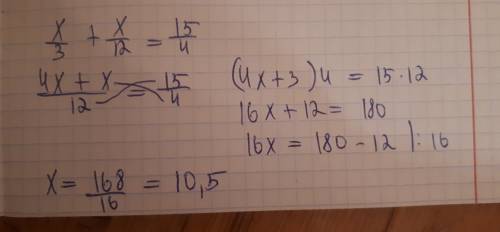 x/3 + x/12 = 15/4
(4x + x)/12 = 15/4
(4x+3)4 = 15·12
16x+12 = 180
16x = 180 - 12 |: 16
x = 168/16 = 10,5